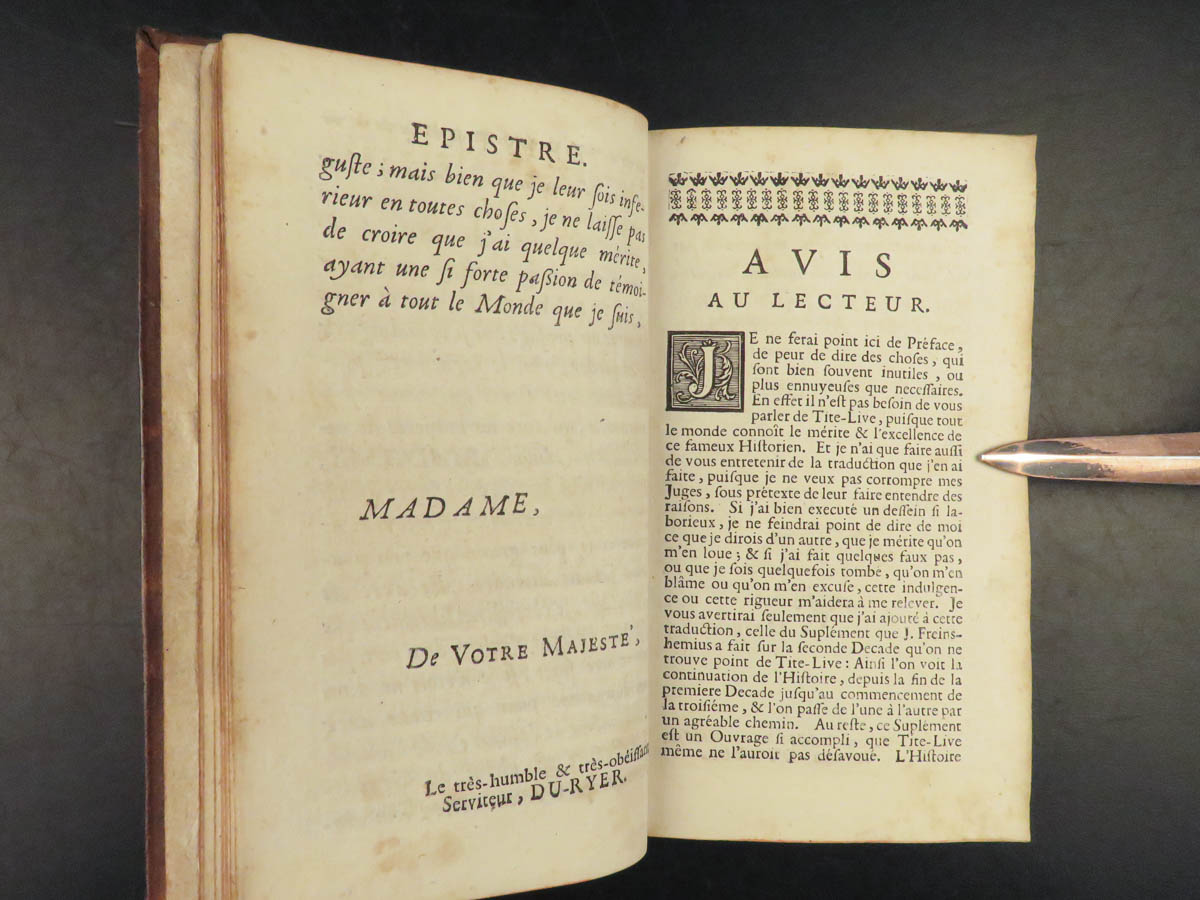 EPISTRE.
guſte ; mais bien que je leur ſois infe-
rieur en toutes choſes, je ne laiſſe pas
de croire que j'ai quelque mérite,
ayant une ſi forte paßion de témoi-
gner à tout le Monde que je ſuis,
MADAME,
De VOTRE MAJESTE',
Le très-humble & très-obéiſſant
Serviteur, DU-RYER.
AVIS
AU LECTEUR.
JE ne ferai point ici de Préface,
de peur de dire des choſes, qui
ſont bien ſouvent inutiles, ou
plus ennuyeuſes que neceſſaires.
En effet il n'eſt pas beſoin de vous
parler de Tite-Live, puiſque tout
le monde connoît le mérite & l'excellence de
ce fameux Hiſtorien. Et je n'ai que faire auſſi
de vous entretenir de la traduction que j'en ai
faite, puiſque je ne veux pas corrompre mes
Juges, ſous prétexte de leur faire entendre des
raiſons. Si j'ai bien executé un deſſein ſi la-
borieux, je ne feindrai point de dire de moi
ce que je dirois d'un autre, que je mérite qu'on
m'en loue ; & ſi j'ai fait quelques faux pas,
ou que je ſois quelquefois tombé, qu'on m'en
blâme ou qu'on m'en excuſe, cette indulgen-
ce ou cette rigueur m'aidera à me relever. Je
vous avertirai ſeulement que j'ai ajouté à cette
traduction, celle du Suplément que J. Freins-
hemius a fait ſur la ſeconde Decade qu'on ne
trouve point de Tite-Live : Ainſi l'on voit la
continuation de l'Hiſtoire, depuis la fin de la
premiere Decade juſqu'au commencement de
la troiſiéme, & l'on paſſe de l'une à l'autre par
un agréable chemin. Au reſte, ce Suplément
eſt un Ouvrage ſi accompli, que Tite-Live
même ne l'auroit pas déſavoué. L'Hiſtoire